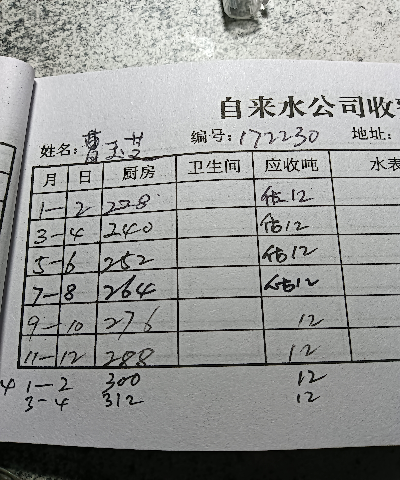 自来水公司收
姓名：曹玉芝 编号：172230 地址：
月 日 厨房 卫生间 应收吨 水表
1-2 228 估12
3-4 240 估12
5-6 252 估12
7-8 264 估12
9-10 276 12
11-12 288 12
4 1-2 300 12
3-4 312 12